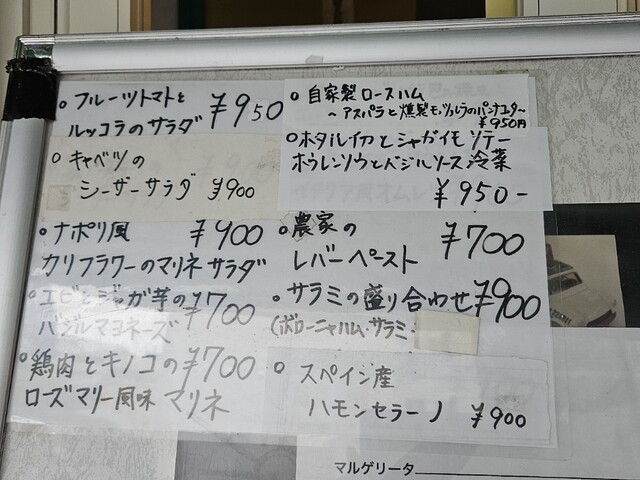 ○フルーツトマトと ¥950
ルッコラのサラダ
○キャベツの
シーザーサラダ ¥900
○ナポリ風 ¥900
カリフラワーのマリネサラダ
○エビとジャガ芋の ¥700
バジルマヨネーズ
○鶏肉とキノコの ¥700
ローズマリー風味マリネ
○自家製ロースハム
～アスパラと燻製モッツァレラのパンナコッタ～
¥950円
○ホタルイカとジャガイモソテー
ホウレンソウとバジルソース冷菜
¥950-
○農家の ¥700
レバーペースト
○サラミの盛り合わせ ¥900
(ボローニャハム・サラミ
○スペイン産
ハモンセラーノ ¥900
マルゲリータ